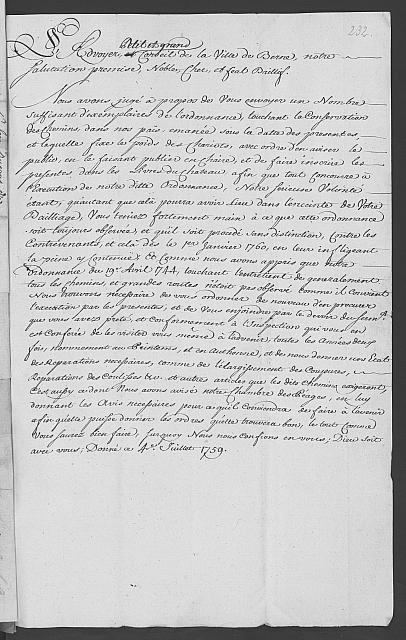 232.
Petit et grand
L'Advoyer, et Conseil de la Ville de Berne, notre
salutation premise, Noble, Cher, et feal Baillif.
Nous avons jugé à propos de Vous envoyer un Nombre
suffisant d'exemplaires de l'ordonnance, touchant la Conservation
des Chemins, dans nos païs emanée sous la datte des presentes,
et laquelle fixe les poids des Chariots, avec ordre d'en aviser le
public, en la faisant publier en Chaire, et de faire inscrire les
presentes dans les Livres du chateau, afin que tout concoure à
l'Execution de notre ditte Ordonnance, Notre serieuse Volonté
étant, qu'autant que cela pourra avoir lieu dans l'enceinte de Votre
Bailliage, Vous teniez fortement main à ce que cette ordonnance
soit toujours observée, et qu'il soit procedé sans distinction, contre les
Contrevenants, et cela dès le 1er Janvier 1760, en leur infligeant
la peine y Contenue. Et comme nous avons appris que notre
Ordonnance du 19e Avril 1744, touchant l'entretient de generalement
tous les chemins, et grandes routes n'étoit pas observé comme il convient
Nous trouvons necessaire de vous ordonner de nouveau d'en procurer
l'execution par les presentes, et de Vous enjoindre par le devoir du serment
que vous avez prêté, et Conformement à l'Inspection qui vous en
est Confiée de les visiter vous même à l'avenir, toutes les Années deux
fois, nommement au Printems, et en Authonne, et de nous donner un Etat
des Reparations necessaires, comme de l'elargissement des Coupures,
Reparations des Coulisses &c. et autres articles que les dits Chemins exigeront,
C'est aussy ce dont Nous avons avisé notre Chambre des Péages, en luy
donnant les Avis necessaires pour ce qu'il conviendra de faire à l'avenir
afin qu'elle puisse donner les ordres qu'elle trouvera bon, le tout comme
Vous saurez bien faire, surquoy Nous nous confions en vous; Dieu soit
avec vous; Donné ce 4e Juillet 1759.